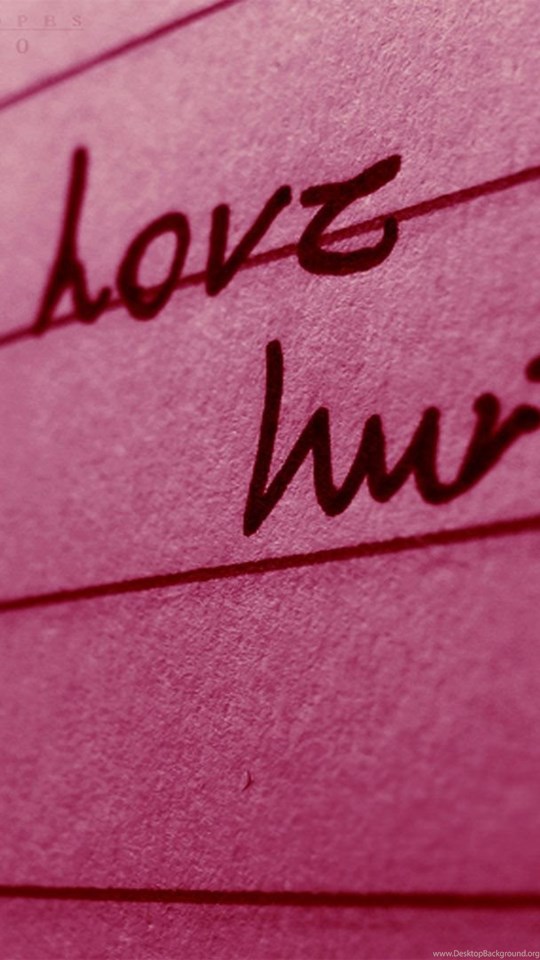 Love
hur
www.DesktopBackground.org